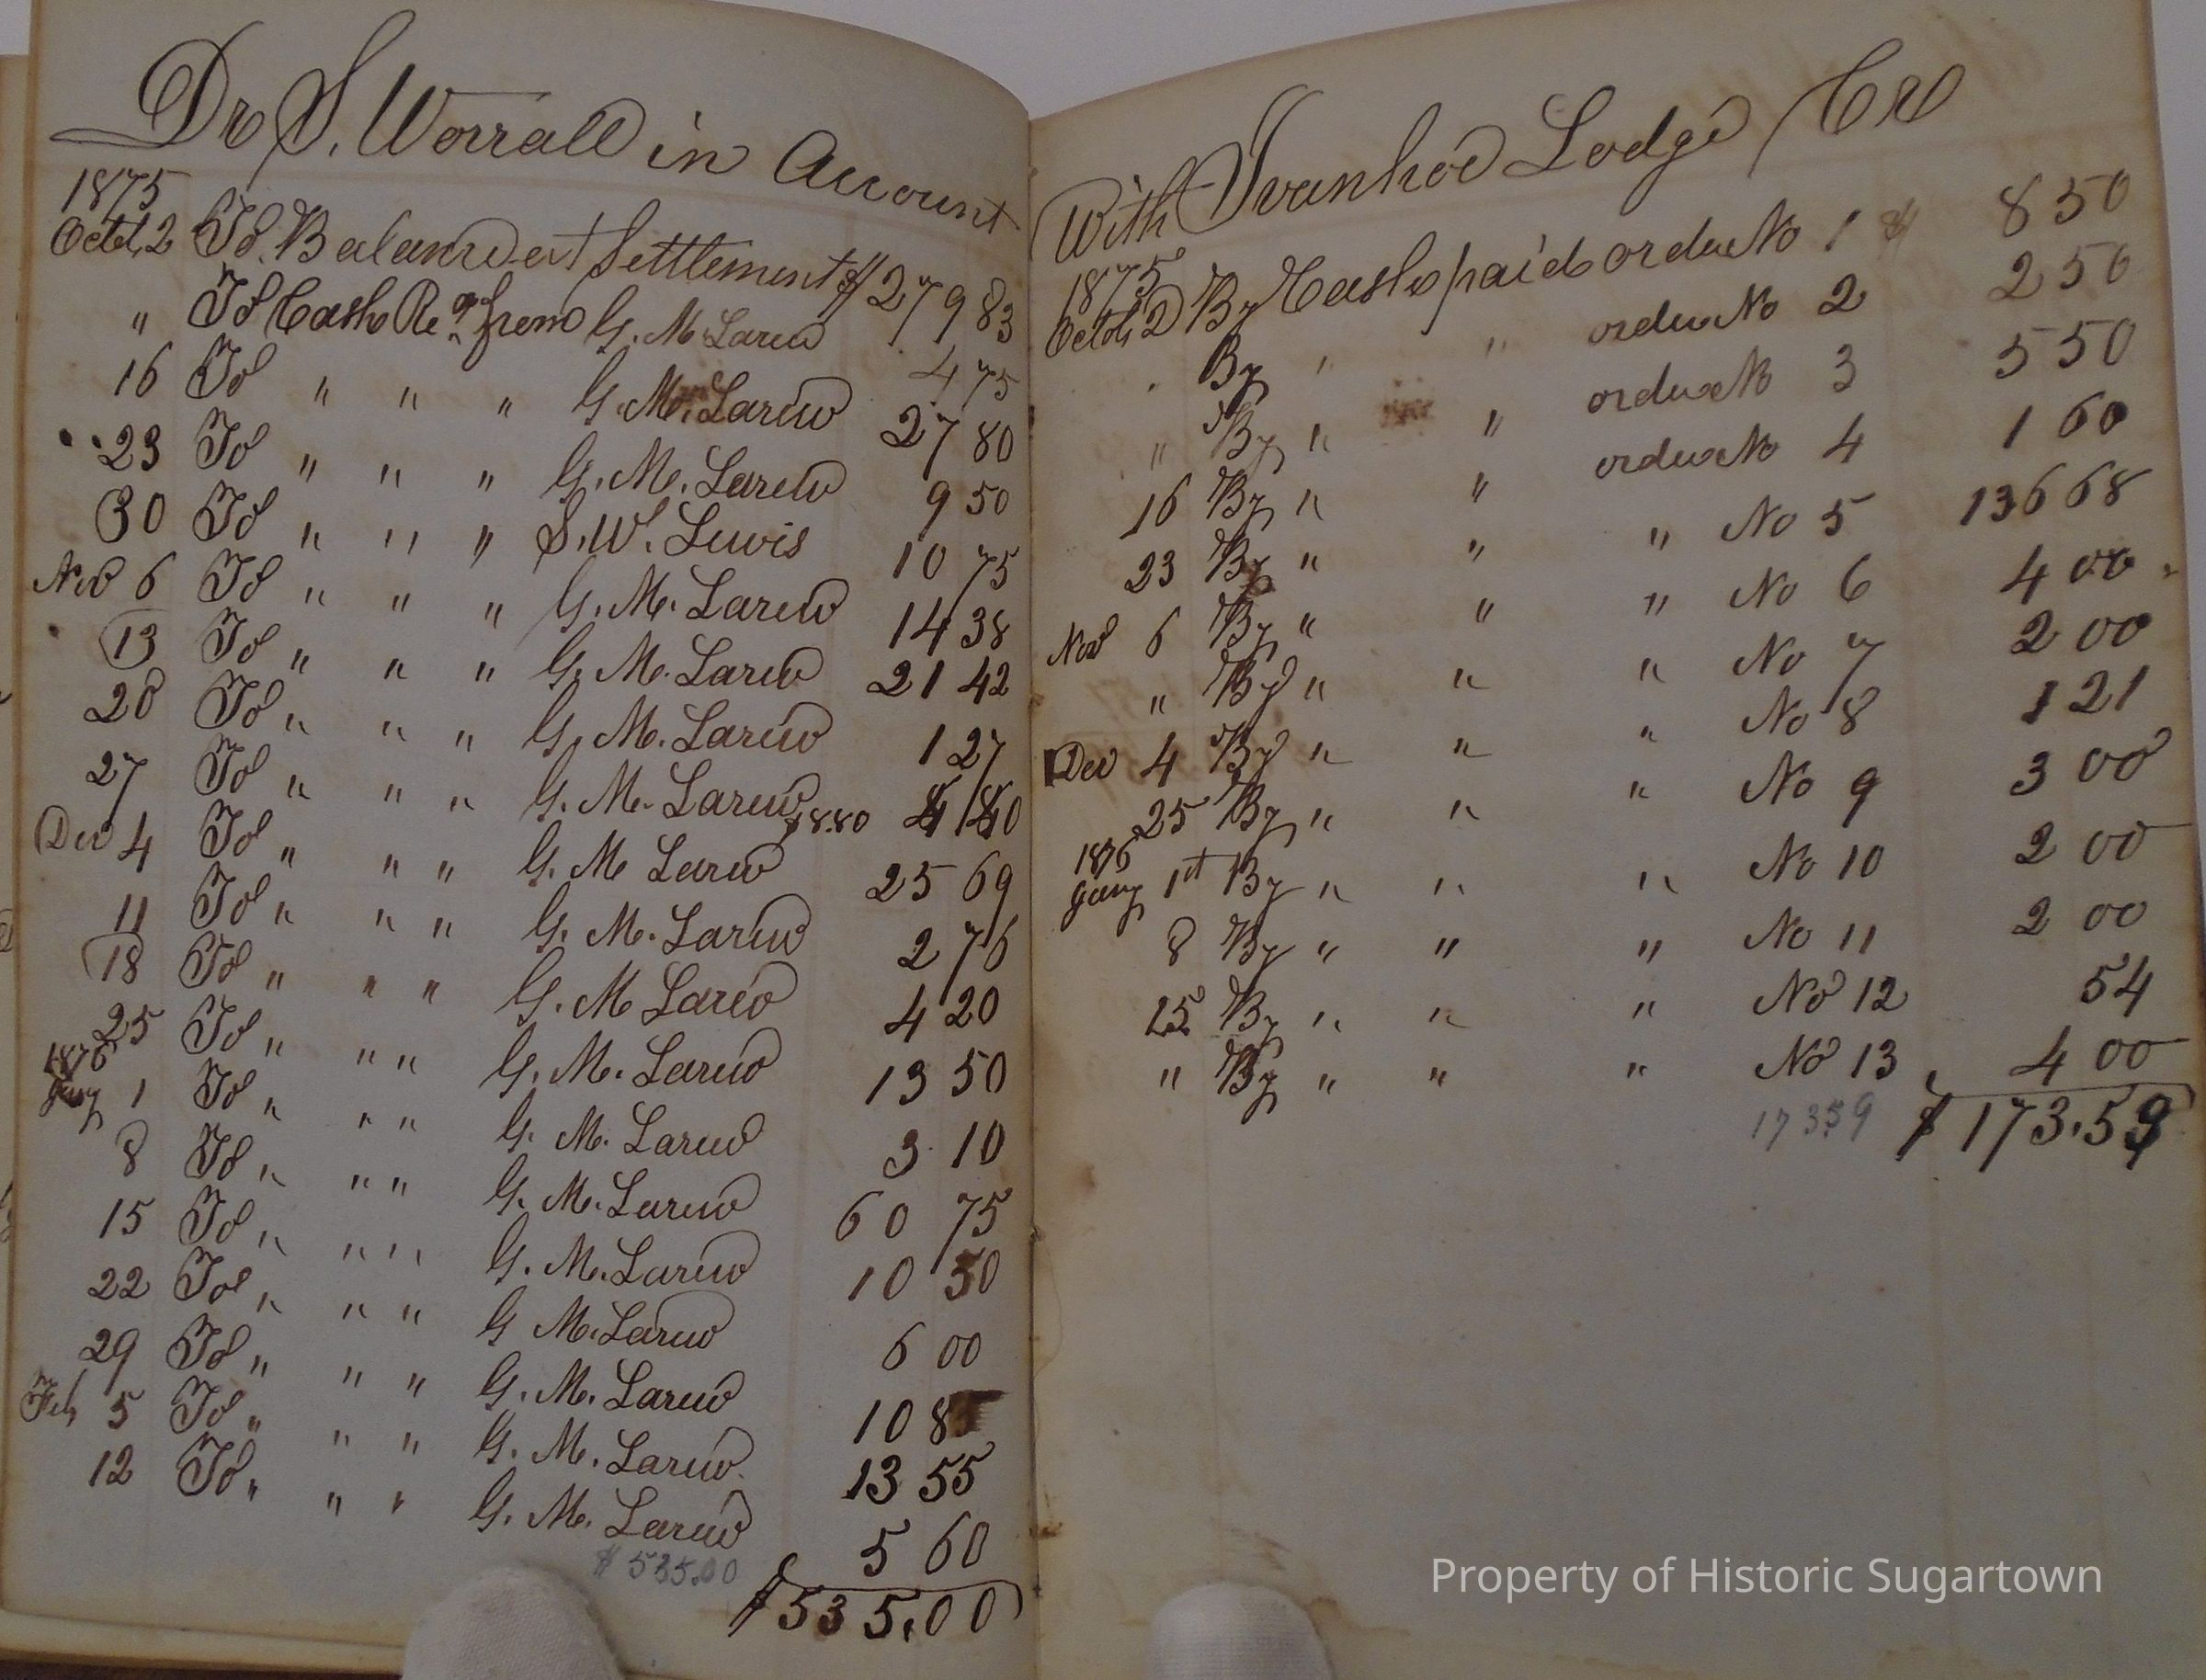 Dr S. Worrall in Account
1875
Octb. 2 To Balance at Settlement $ 279 83
" To Cash Recd from G. M. Larew 4 75
16 To " " " G. M. Larew 27 80
23 To " " " G. M. Larew 9 50
30 To " " " S. W. Lewis 10 75
Nov 6 To " " " G. M. Larew 14 38
13 To " " " G. M. Larew 21 42
20 To " " " G. M. Larew 1 27
27 To " " " G. M. Larew $8.80
Dec 4 To " " " G. M Larew 25 69
11 To " " " G. M. Larew 2 76
18 To " " " G. M Larew 4 20
25 To " " " G. M. Larew 13 50
1876
Jany 1 To " " " G. M. Larew 3 10
8 To " " " G. M. Larew 60 75
15 To " " " G. M. Larew 10 50
22 To " " " G M. Larew 6 00
29 To " " " G. M. Larew 10 85
Feb 5 To " " " G. M. Larew 13 55
12 To " " " G. M. Larew 5 60
$ 535.00
$535.00
With Ivanhoe Lodge Cr
1875
Octb. 2 By Cash paid order No 1 $ 8 50
" By " " order No 2 2 50
" By " " order No 3 5 50
16 By " " order No 4 1 60
23 By " " " No 5 136 68
Nov 6 By " " " No 6 4 00
" By " " " No 7 2 00
Dec 4 By " " " No 8 1 21
25 By " " " No 9 3 00
1876
Jany 1st By " " " No 10 2 00
8 By " " " No 11 2 00
15 By " " " No 12 54
" By " " " No 13 4 00
173.59 $ 173.53
Property of Historic Sugartown